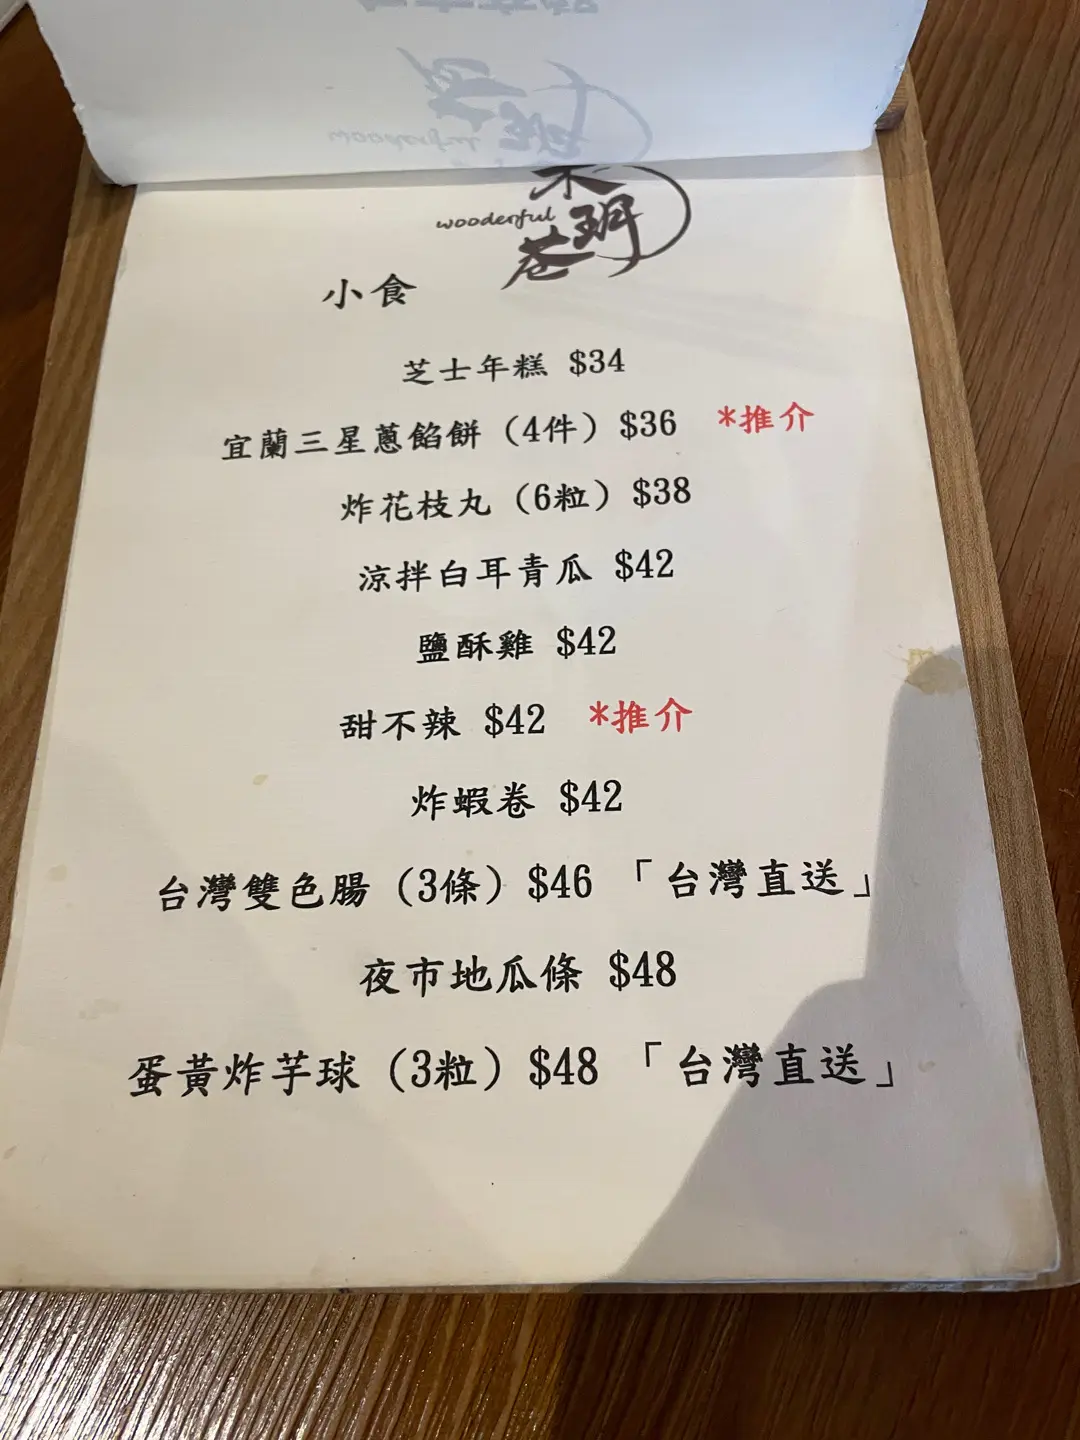 wooderful
木玥苍
小食
芝士年糕 $34
宜蘭三星蔥餡餅（4件）$36 *推介
炸花枝丸（6粒）$38
涼拌白耳青瓜 $42
鹽酥雞 $42
甜不辣 $42 *推介
炸蝦卷 $42
台灣雙色腸（3條）$46 「台灣直送」
夜市地瓜條 $48
蛋黃炸芋球（3粒）$48 「台灣直送」